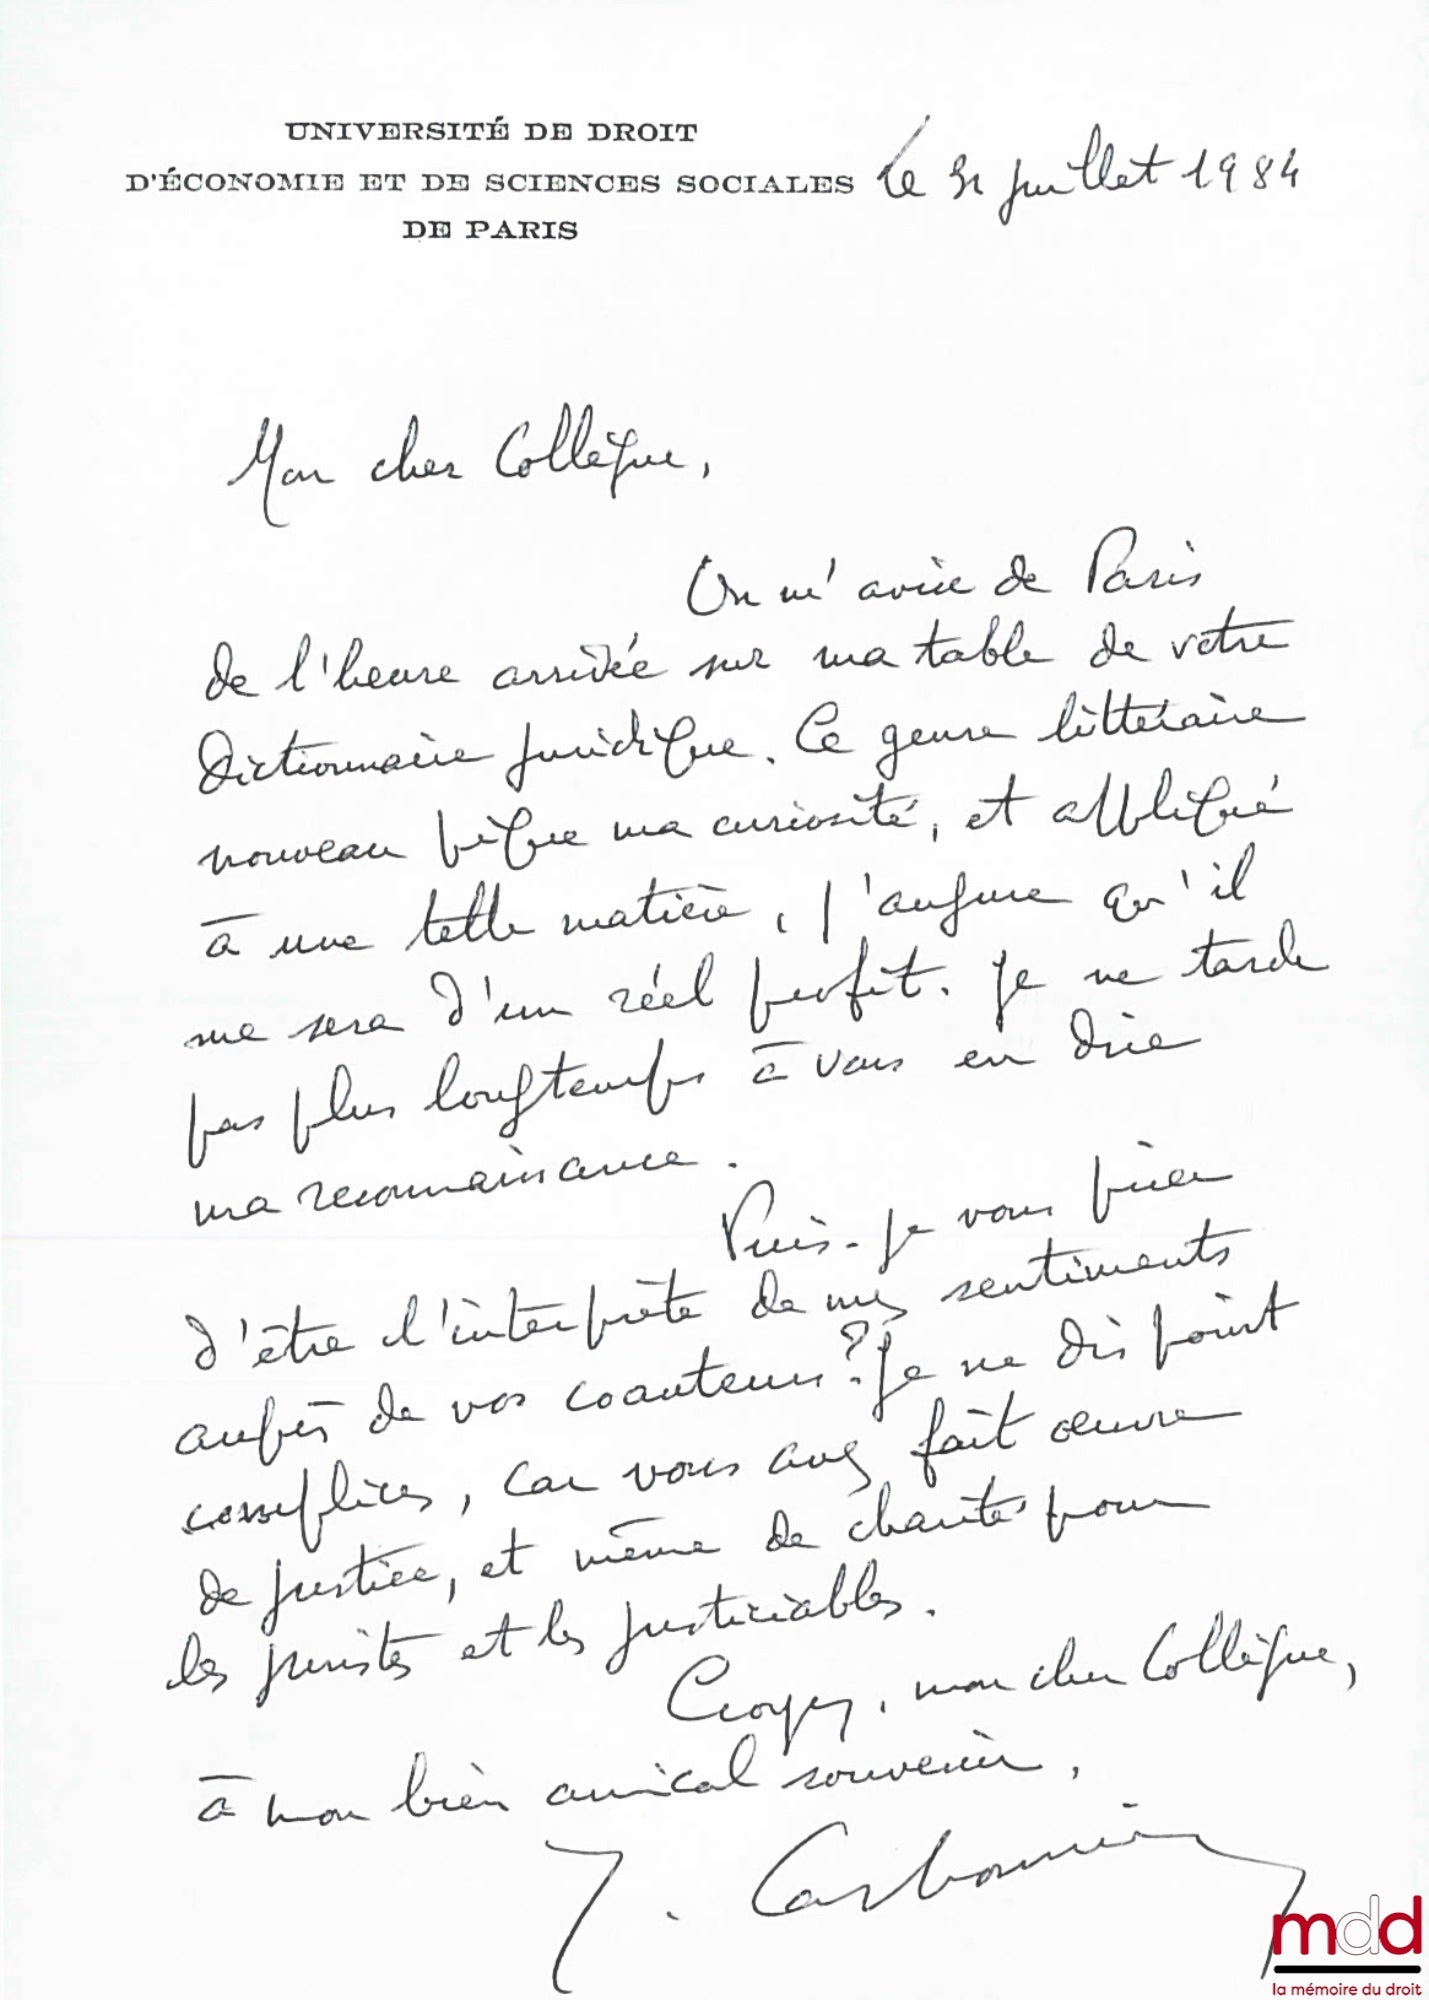 UNIVERSITÉ DE DROIT
D'ÉCONOMIE ET DE SCIENCES SOCIALES
DE PARIS
Le 31 juillet 1984
Mon cher Collègue,
On m'avise de Paris
de l'heureuse arrivée sur ma table de votre
Dictionnaire juridique. Ce genre littéraire
nouveau pique ma curiosité, et appliqué
à une telle matière, j'augure qu'il
me sera d'un réel profit. Je ne tarde
pas plus longtemps à vous en dire
ma reconnaissance.
Puis-je vous prier
d'être l'interprète de mes sentiments
auprès de vos coauteurs? Je ne dis point
complices, car vous avez fait œuvre
de justice, et même de charité pour
les juristes et les justiciables.
Croyez, mon cher Collègue,
à mon bien amical souvenir,
J. Carbonnier
mdd
la mémoire du droit